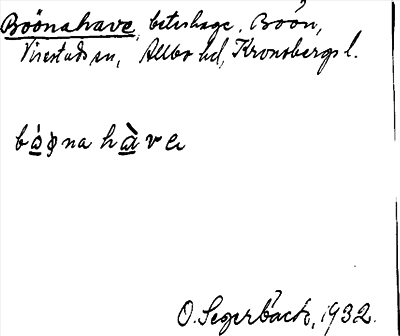 Boönahave, beteshage. Boön,
Virestads sn, Allbo hd, Kronobergs l.
bo̱ǿna hà̱ve
O. Segerbäck, 1932.